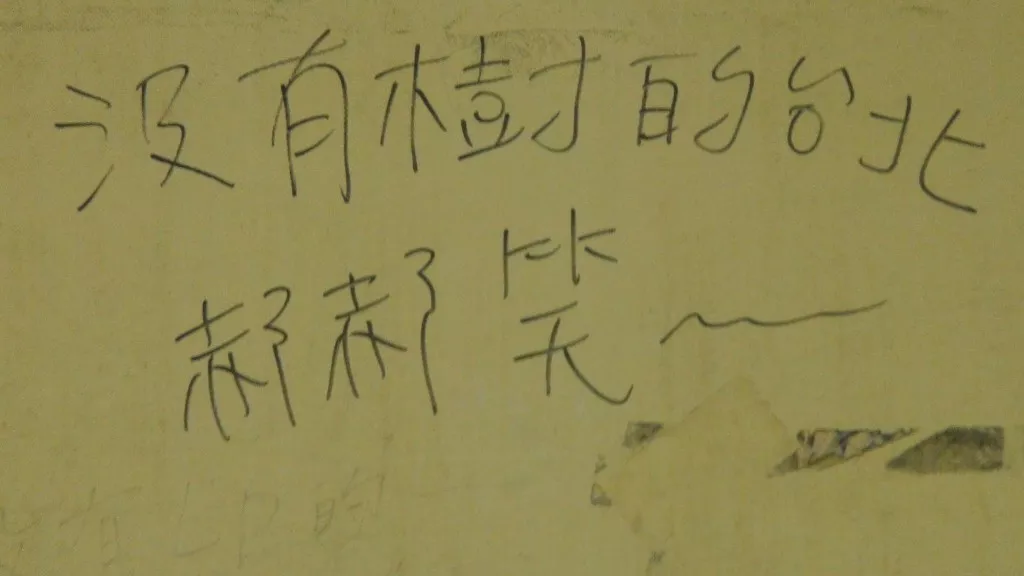 沒有樹的台北
郝郝笑～